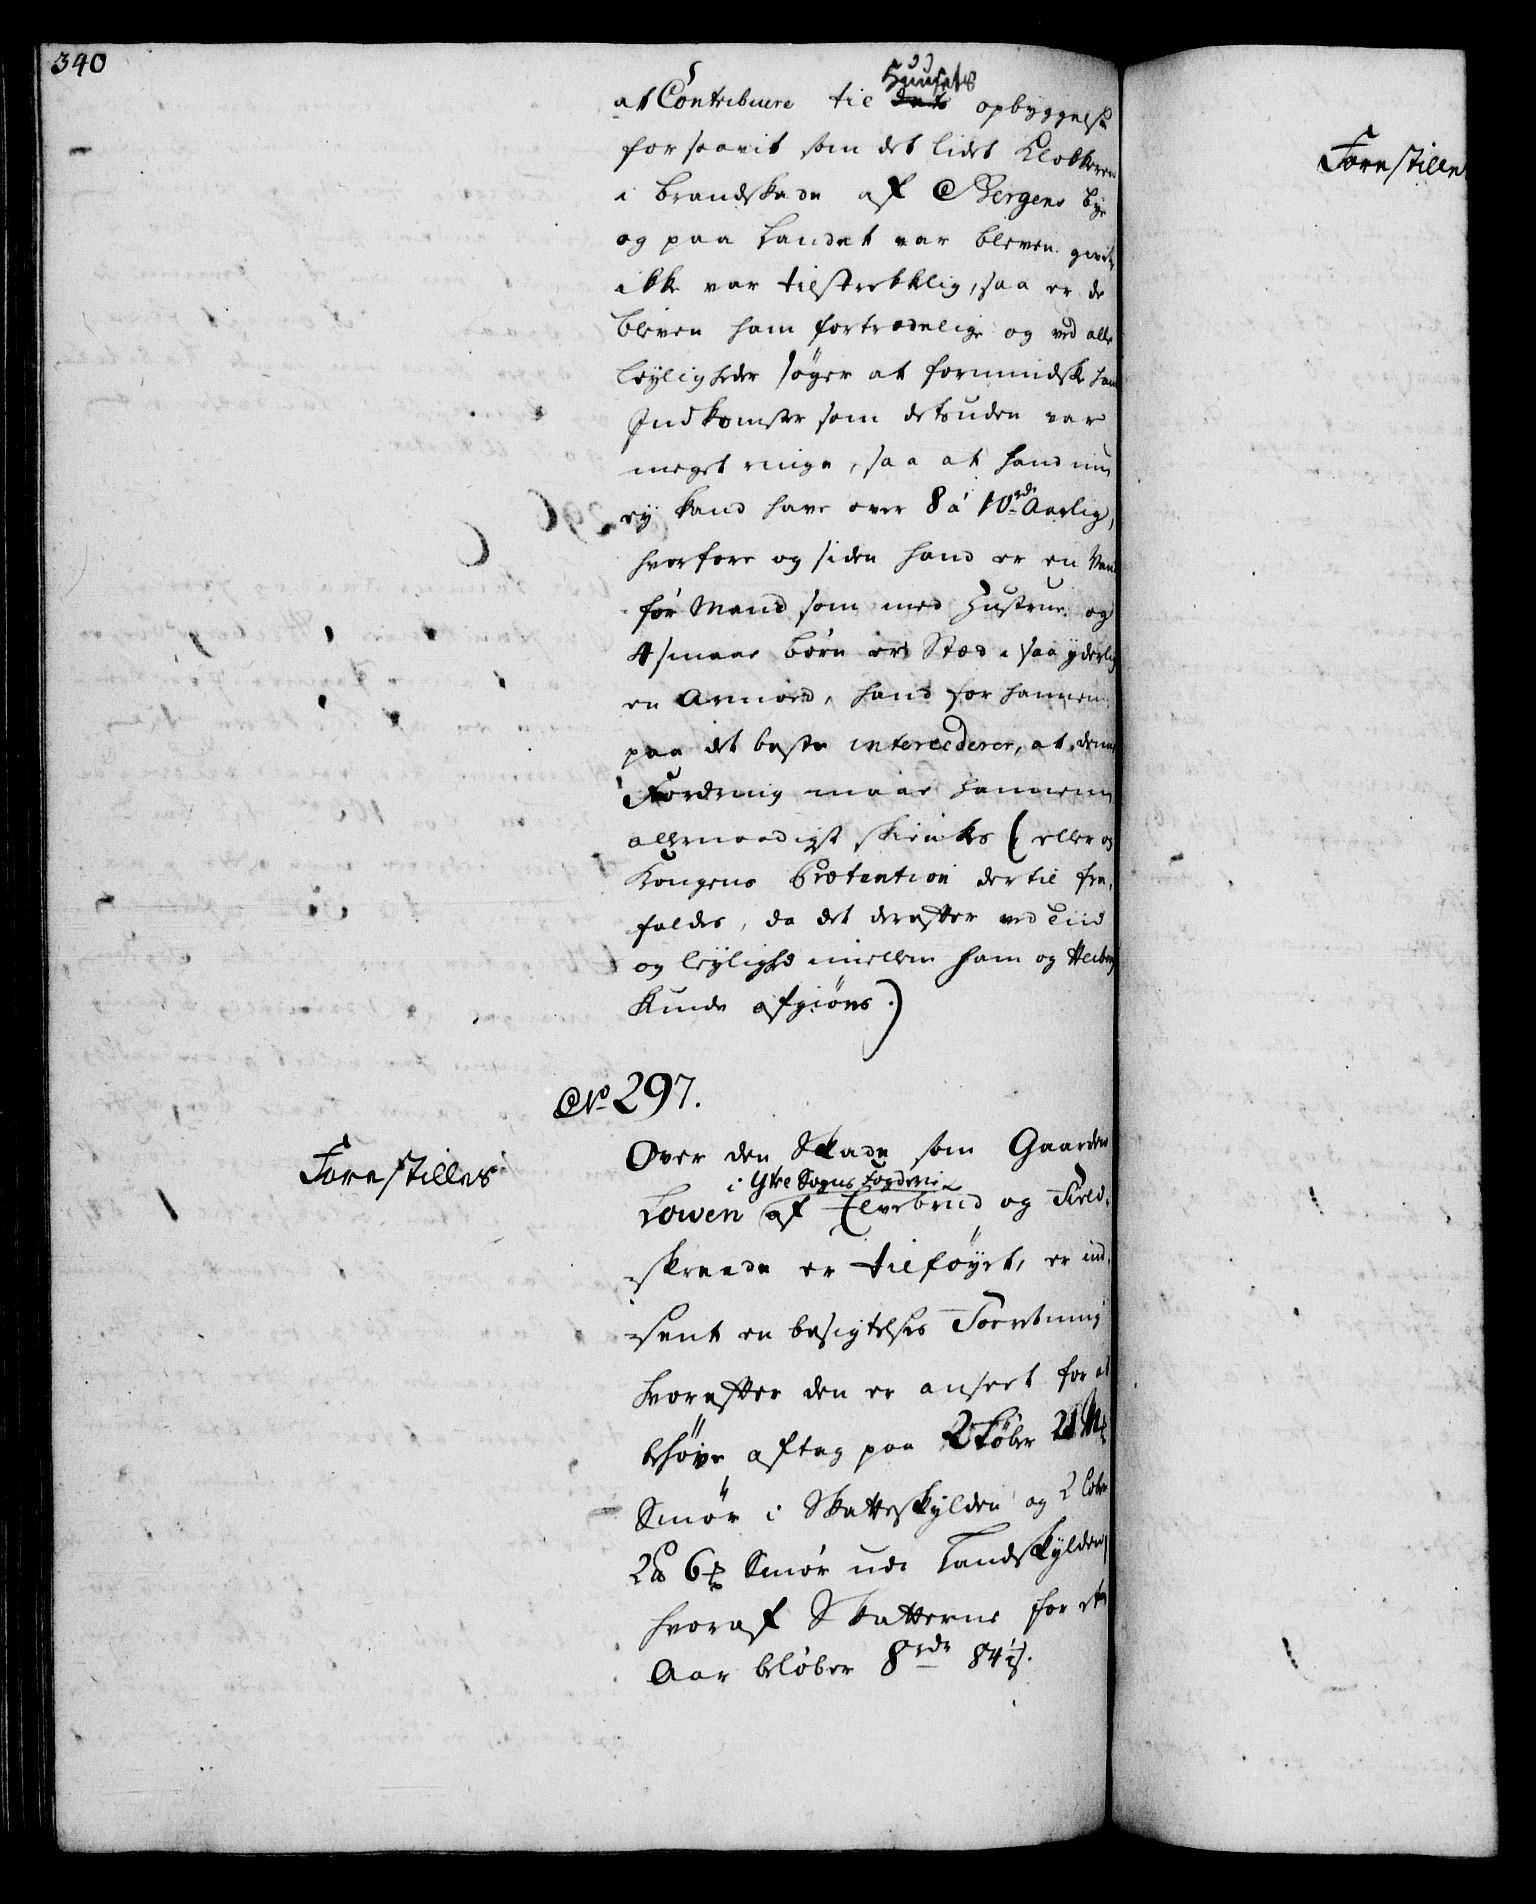 340
Huusets
at Contribuere til dets opbyggelse
for saavit som det lidet Klokkeren
i brandskade af Bergens bye
og paa Landet var bleven givet
ikke var tilstrekkelig, saa er de
bleven ham fortrædelige og ved alle
leyligheder søger at formindske hans
Indkomster som desuden var
meget ringe, saa at hand nu
ey kand have over 8 á 10 rdr Aarlig,
hvorfore og siden hand er en Van
før Mand som med Hustrue og
4 smaae børn er Sted i saa yderlig
en Armod, hand for hannem
paa det beste intercederer, at denne
Fordring maae hannem
allernaadigst skienkes (eller og
Kongens Prætention dertil fra,
faldes, da det derefter ved Tiid
og leylighed imellem ham og Heiberg
kunde afgiøres.)
No 297.
Forestilles
Over den Skade som Gaarden
i Ytre Sogns Fogderie
Lowen af Elvebrud og Field,
skreede er tilføyet, er ind,
sent en besigtelses Forretning
hvorefter den er anseet for at
behøve aftag paa 2 Løber 21 Mk
Smør i Skatteskylden og 2 løber
2 pd 6 mk Smør udi Landskylden
hvoraf Skatterne for et
Aar beløber 8 rdr 84 ½ s.
Forestilles